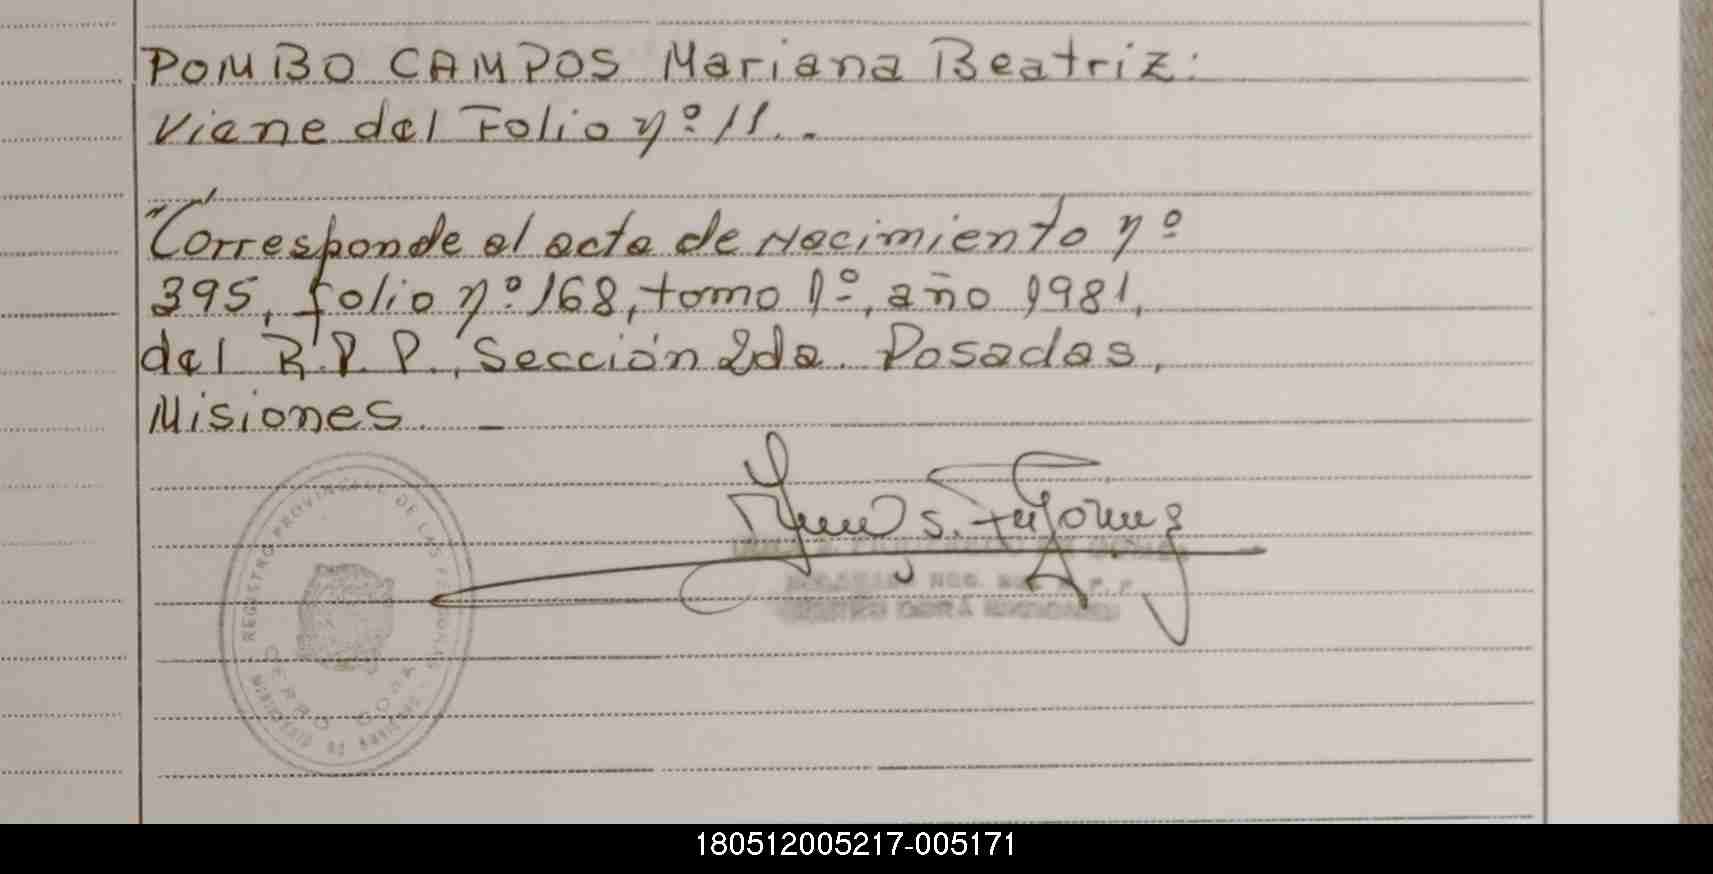 POMBO CAMPOS Mariana Beatriz:
Viene del Folio nº 11..
"Corresponde al acta de Nacimiento nº
395, folio nº 168, tomo 1º, año 1981,
del R.P.P., Sección 2da. Posadas,
Misiones. —
REGISTRO PROVINCIAL DE LAS PERSONAS
CERRO CORA
MINISTERIO DE GOBIERNO
180512005217-005171